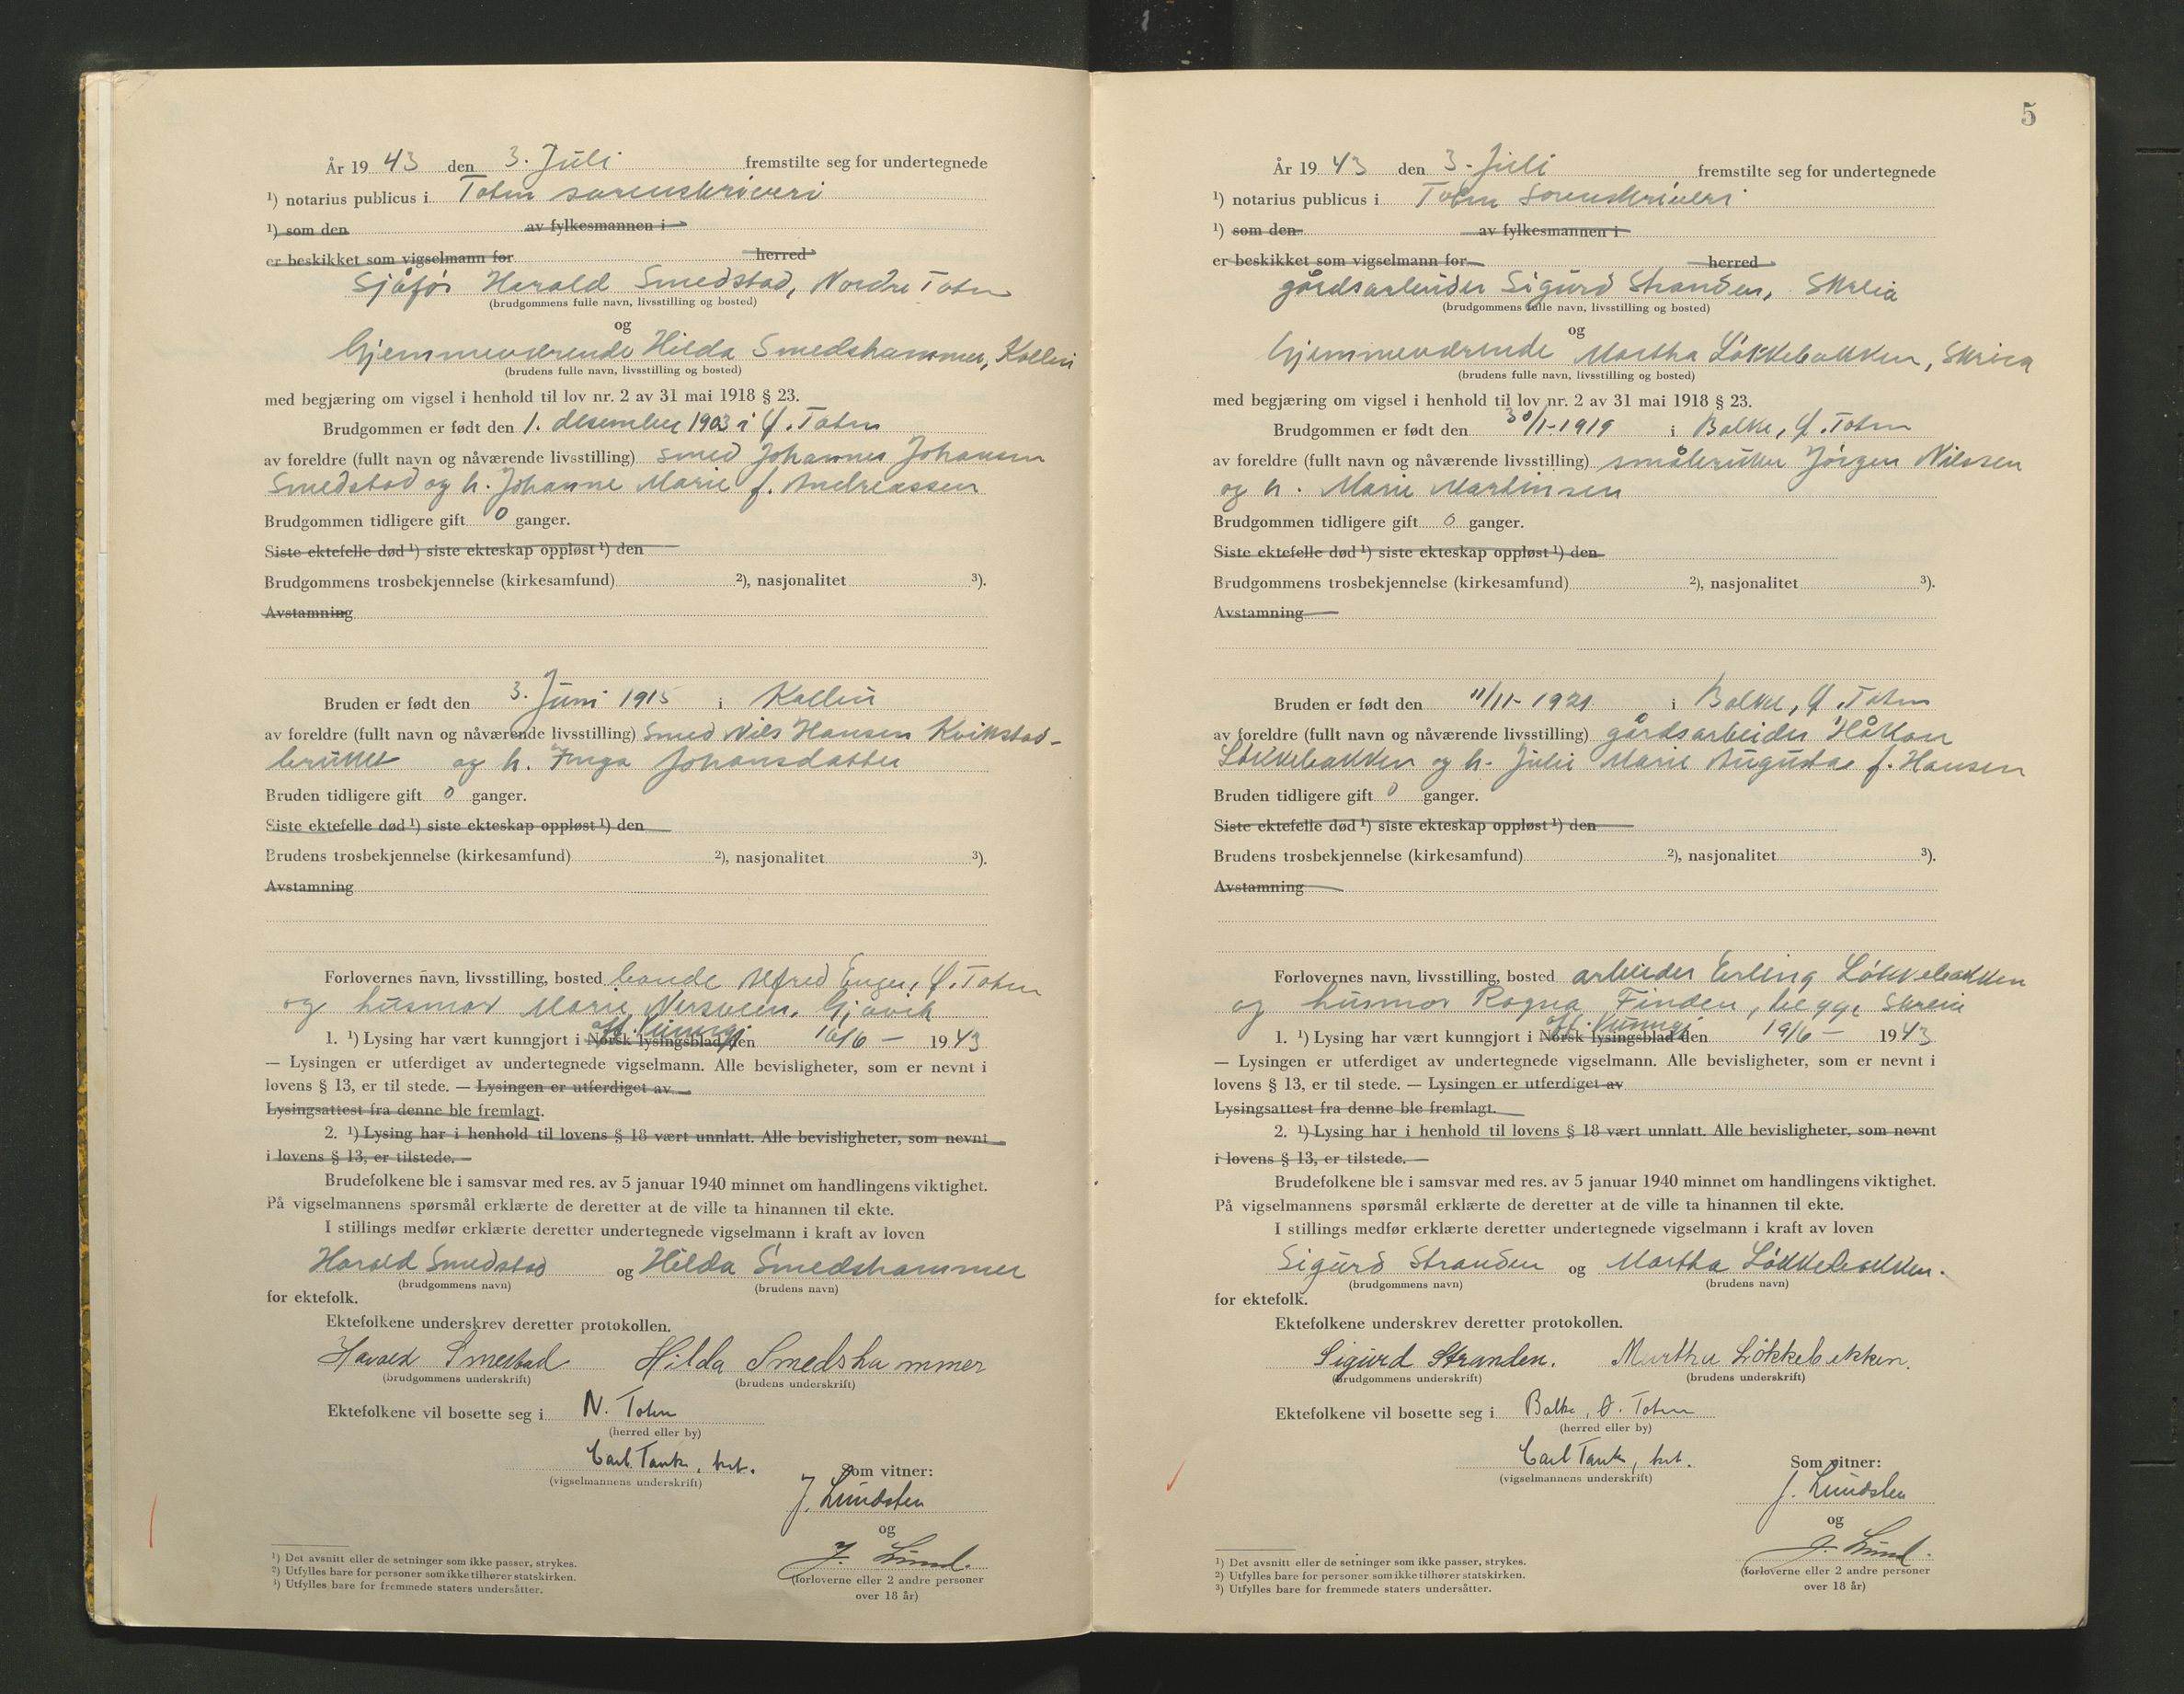 År 19 43 den 3. Juli fremstilte seg for undertegnede
¹) notarius publicus i Toten sorenskriveri
¹) som den av fylkesmannen i
er beskikket som vigselmann for herred
Sjåfør Harald Smedstad, Nordre Toten
(brudgommens fulle navn, livsstilling og bosted)
og
Hjemmeværende Hilda Smedshammer, Kolbu
(brudens fulle navn, livsstilling og bosted)
med begjæring om vigsel i henhold til lov nr. 2 av 31 mai 1918 § 23.
Brudgommen er født den 1. desember 1903 i Ø. Toten
av foreldre (fullt navn og nåværende livsstilling) smed Johannes Johansen
Smedstad og h. Johanne Marie f. Andreassen
Brudgommen tidligere gift 0 ganger.
Siste ektefelle død ¹) siste ekteskap oppløst ¹) den
Brudgommens trosbekjennelse (kirkesamfund) ²), nasjonalitet ³).
Avstamning
Bruden er født den 3. Juni 1915 i Kolbu
av foreldre (fullt navn og nåværende livsstilling) Smed Nils Hansen Kvikstad-
bruket og h. Inga Johansdatter
Bruden tidligere gift 0 ganger.
Siste ektefelle død ¹) siste ekteskap oppløst ¹) den
Brudens trosbekjennelse (kirkesamfund) ²), nasjonalitet ³).
Avstamning
Forlovernes navn, livsstilling, bosted bonde Alfred Enger, Ø. Toten
og husmor Marie Nersveen, Gjøvik
off. kunngj.
1. ¹) Lysing har vært kunngjort i Norsk lysingsblad den 16/6 – 19 43
— Lysingen er utferdiget av undertegnede vigselmann. Alle bevisligheter, som er nevnt i
lovens § 13, er til stede. — Lysingen er utferdiget av
Lysingsattest fra denne ble fremlagt.
2. ¹) Lysing har i henhold til lovens § 18 vært unnlatt. Alle bevisligheter, som nevnt
i lovens § 13, er tilstede. —
Brudefolkene ble i samsvar med res. av 5 januar 1940 minnet om handlingens viktighet.
På vigselmannens spørsmål erklærte de deretter at de ville ta hinannen til ekte.
I stillings medfør erklærte deretter undertegnede vigselmann i kraft av loven
Harald Smedstad og Hilda Smedshammer
(brudgommens navn) (brudens navn)
for ektefolk.
Ektefolkene underskrev deretter protokollen.
Harald Smedstad Hilda Smedshammer
(brudgommens underskrift) (brudens underskrift)
Ektefolkene vil bosette seg i N. Toten
(herred eller by)
Carl Tank, kst.
(vigselmannens underskrift)
Som vitner:
J. Lundsten
og
J. Lund.
(forloverne eller 2 andre personer
over 18 år)
¹) Det avsnitt eller de setninger som ikke passer, strykes.
²) Utfylles bare for personer som ikke tilhører statskirken.
³) Utfylles bare for fremmede staters undersåtter.
5
År 19 43 den 3. Juli fremstilte seg for undertegnede
¹) notarius publicus i Toten Sorenskriveri
¹) som den av fylkesmannen i
er beskikket som vigselmann for herred
gårdsarbeider Sigurd Stranden, Skreia
(brudgommens fulle navn, livsstilling og bosted)
og
Hjemmeværende Martha Løkkebakken, Skreia
(brudens fulle navn, livsstilling og bosted)
med begjæring om vigsel i henhold til lov nr. 2 av 31 mai 1918 § 23.
Brudgommen er født den 30/1-1919 i Balke, Ø. Toten
av foreldre (fullt navn og nåværende livsstilling) småbruker Jørgen Nilssen
og h. Marie Martinsen
Brudgommen tidligere gift 0 ganger.
Siste ektefelle død ¹) siste ekteskap oppløst ¹) den
Brudgommens trosbekjennelse (kirkesamfund) ²), nasjonalitet ³).
Avstamning
Bruden er født den 11/11-1921 i Balke, Ø. Toten
av foreldre (fullt navn og nåværende livsstilling) gårdsarbeider Håkon
Løkkebakken og h. Julie Marie Augusta f. Hansen
Bruden tidligere gift 0 ganger.
Siste ektefelle død ¹) siste ekteskap oppløst ¹) den
Brudens trosbekjennelse (kirkesamfund) ²), nasjonalitet ³).
Avstamning
Forlovernes navn, livsstilling, bosted arbeider Erling Løkkebakken
og husmor Ragna Finden, begge Skreia
off. kunngj
1. ¹) Lysing har vært kunngjort i Norsk lysingsblad den 19/6 – 19 43
— Lysingen er utferdiget av undertegnede vigselmann. Alle bevisligheter, som er nevnt i
lovens § 13, er til stede. — Lysingen er utferdiget av
Lysingsattest fra denne ble fremlagt.
2. ¹) Lysing har i henhold til lovens § 18 vært unnlatt. Alle bevisligheter, som nevnt
i lovens § 13, er tilstede. —
Brudefolkene ble i samsvar med res. av 5 januar 1940 minnet om handlingens viktighet.
På vigselmannens spørsmål erklærte de deretter at de ville ta hinannen til ekte.
I stillings medfør erklærte deretter undertegnede vigselmann i kraft av loven
Sigurd Stranden og Martha Løkkebakken.
(brudgommens navn) (brudens navn)
for ektefolk.
Ektefolkene underskrev deretter protokollen.
Sigurd Stranden. Martha Løkkebakken.
(brudgommens underskrift) (brudens underskrift)
Ektefolkene vil bosette seg i Balke, Ø. Toten
(herred eller by)
Carl Tank, kst.
(vigselmannens underskrift)
Som vitner:
J. Lundsten
og
J. Lund.
(forloverne eller 2 andre personer
over 18 år)
¹) Det avsnitt eller de setninger som ikke passer, strykes.
²) Utfylles bare for personer som ikke tilhører statskirken.
³) Utfylles bare for fremmede staters undersåtter.